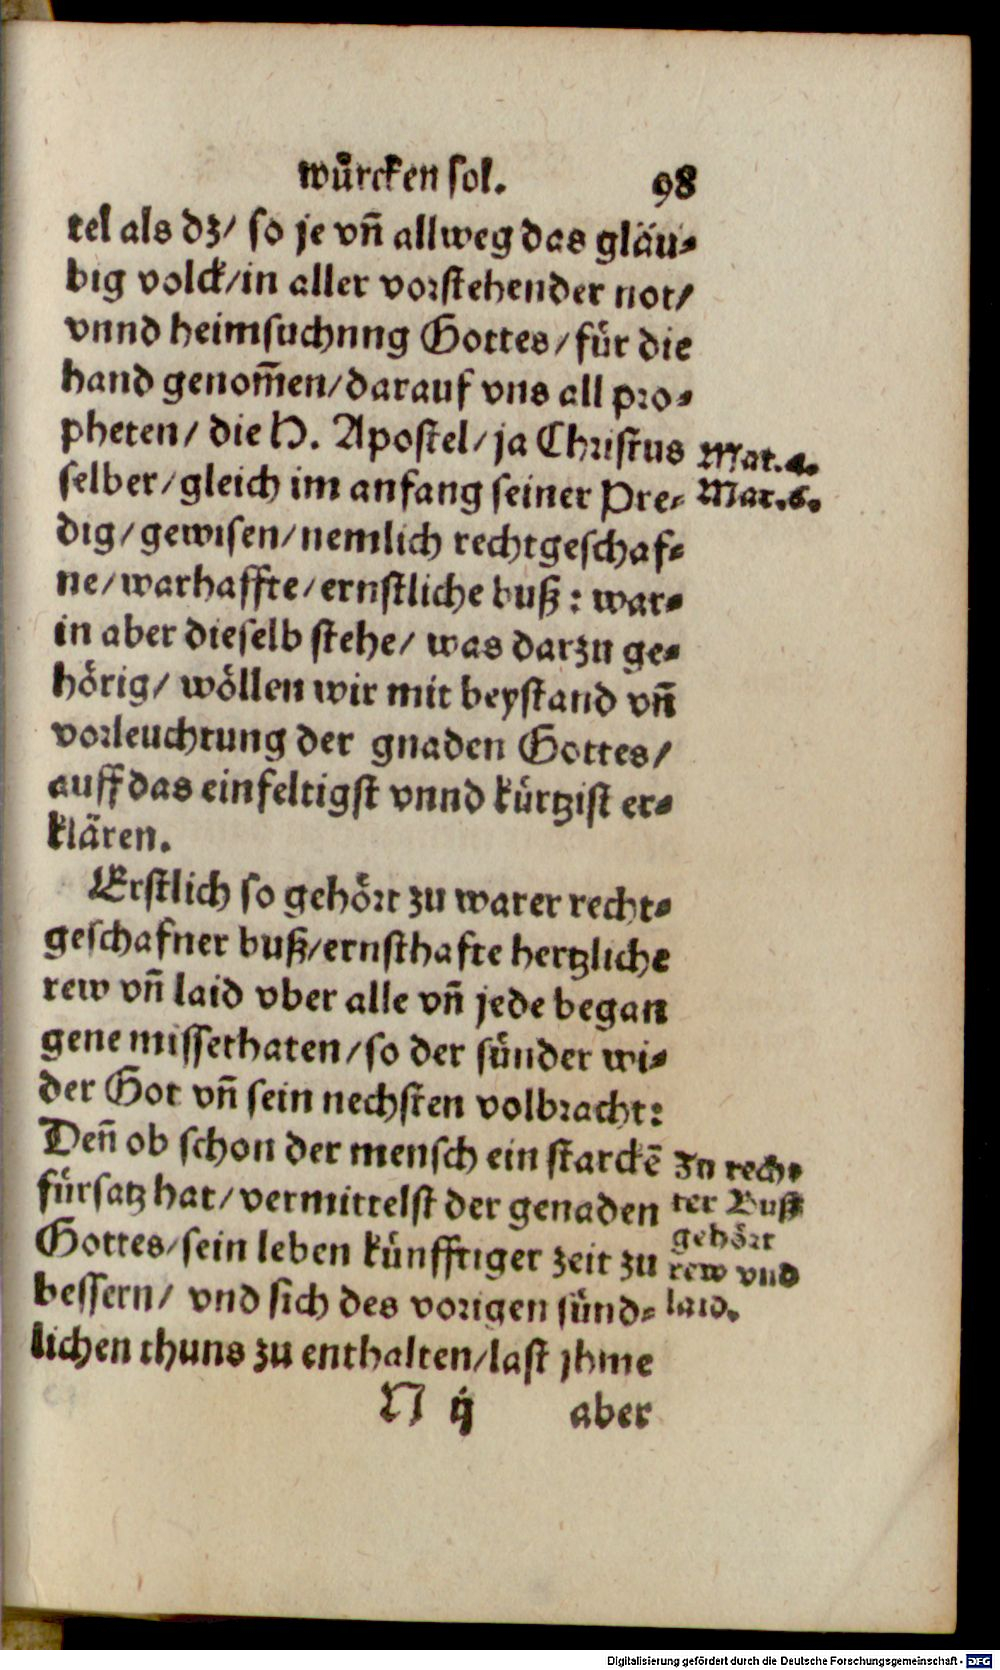 wuͤrcken sol. 98
tel als dz/ so je vñ allweg das gläu-
big volck/in aller vorstehender not/
vnnd heimsuchnng Gottes/für die
hand genom̃en/darauf vns all pro-
pheten/ die H. Apostel/ja Christus
selber/gleich im anfang seiner Pre-
dig/gewisen/nemlich rechtgeschaf-
ne/warhaffte/ernstliche buß: war-
in aber dieselb stehe/ was darzu ge-
hörig/ wöllen wir mit beystand vñ
vorleuchtung der gnaden Gottes/
auff das einfeltigst vnnd kürtzist er-
klären.
Erstlich so gehört zu warer recht-
geschafner buß/ernsthafte hertzliche
rew vñ laid vber alle vñ jede began
gene missethaten/so der sünder wi-
der Got vñ sein nechsten volbracht:
Deñ ob schon der mensch ein starckẽ
fürsatz hat/vermittelst der genaden
Gottes/sein leben künfftiger zeit zu
bessern/ vnd sich des vorigen sünd-
lichen thuns zu enthalten/last jhme
N ij aber
Mat.4.
Mar.6.
Zu rech-
ter Buß
gehört
rew vnd
laid.
Digitalisierung gefördert durch die Deutsche Forschungsgemeinschaft - DFG